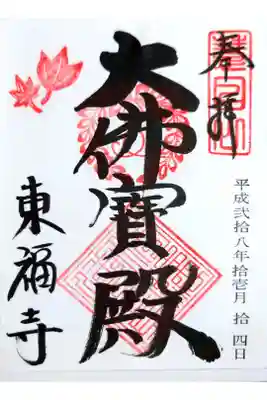 奉拝
平成弐拾八年拾壱月 拾四日
大佛寳殿
東福寺